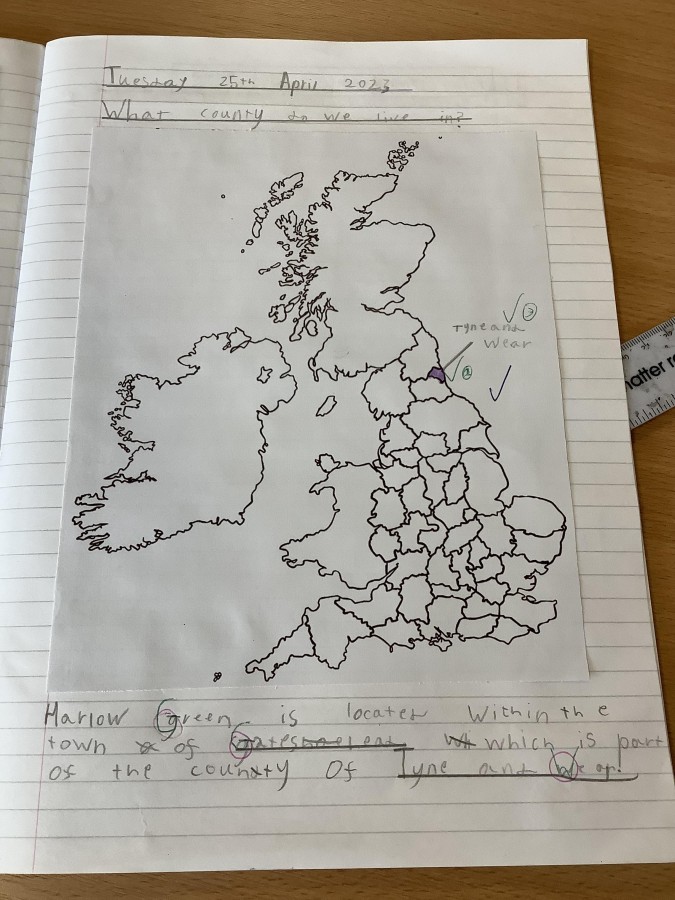 Tuesday 25th April 2023
What county do we live in?
Tyne and
Wear
atter re
Harlow green is located within the
town of gateshead which is part
of the county Of Tyne and Wear.